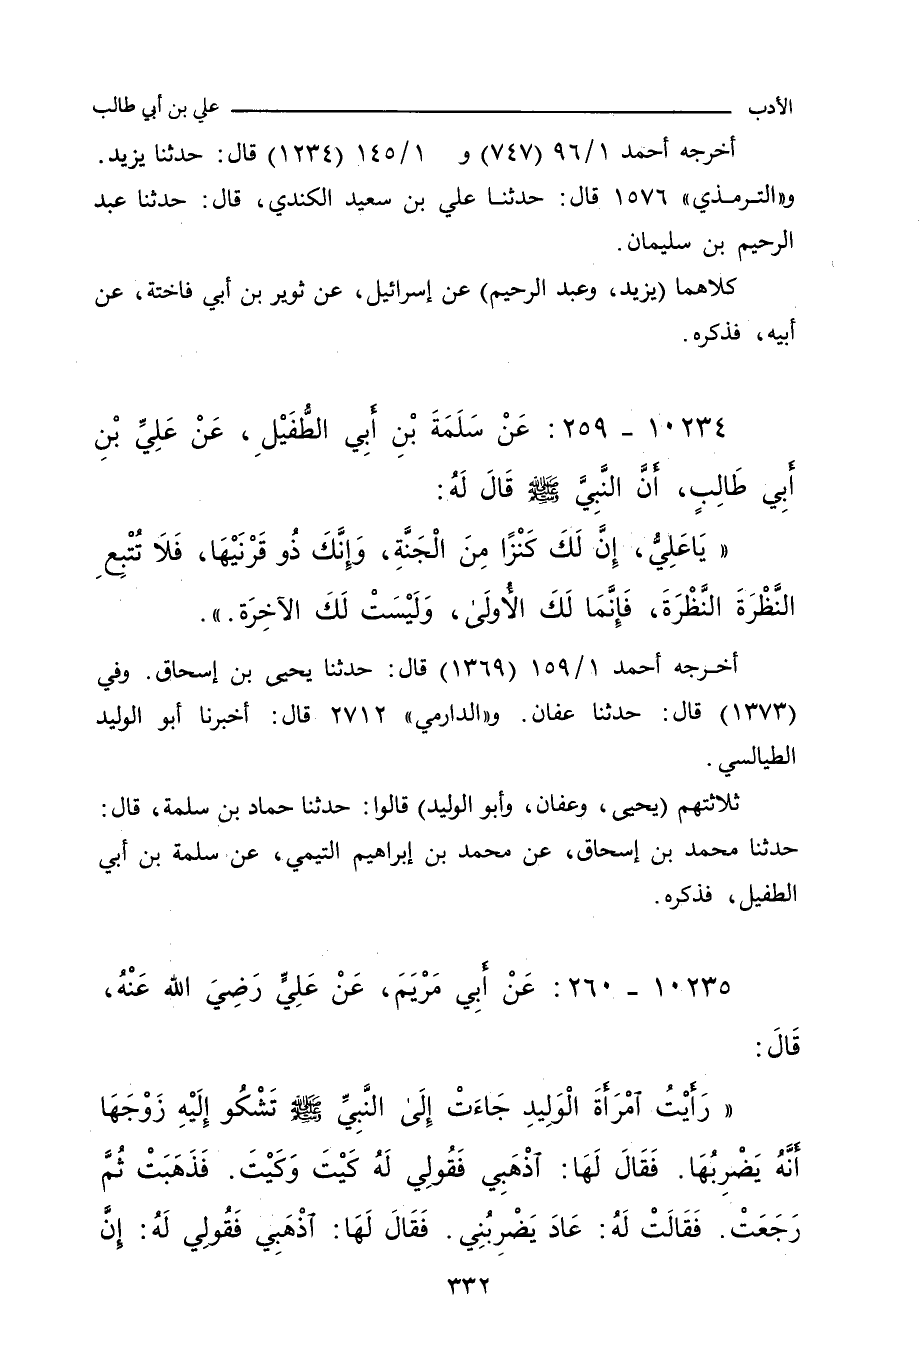 الأدب ــــــــــــــــ علي بن أبي طالب
أخرجه أحمد ٩٦/١ (٧٤٧) و ١٤٥/١ (١٢٣٤) قال: حدثنا يزيد.
و«الترمذي» ١٥٧٦ قال: حدثنا علي بن سعيد الكندي، قال: حدثنا عبد
الرحيم بن سليمان.
كلاهما (يزيد، وعبد الرحيم) عن إسرائيل، عن ثوير بن أبي فاختة، عن
أبيه، فذكره.
١٠٢٣٤ - ٢٥٩: عَنْ سَلَمَةَ بْنِ أَبِي الطُّفَيْلِ، عَنْ عَلِيِّ بْنِ
أَبِي طَالِبٍ، أَنَّ النَّبِيَّ ﷺ قَالَ لَهُ:
« يَاعَلِيُّ، إِنَّ لَكَ كَنْزًا مِنَ الْجَنَّةِ، وَإِنَّكَ ذُو قَرْنَيْهَا، فَلَا تُتْبِعِ
النَّظْرَةَ النَّظْرَةَ، فَإِنَّمَا لَكَ الْأُولَىٰ، وَلَيْسَتْ لَكَ الآخِرَة.».
أخرجه أحمد ١٥٩/١ (١٣٦٩) قال: حدثنا يحيى بن إسحاق. وفي
(١٣٧٣) قال: حدثنا عفان. و«الدارمي» ٢٧١٢ قال: أخبرنا أبو الوليد
الطيالسي.
ثلاثتهم (يحيى، وعفان، وأبو الوليد) قالوا: حدثنا حماد بن سلمة، قال:
حدثنا محمد بن إسحاق، عن محمد بن إبراهيم التيمي، عن سلمة بن أبي
الطفيل، فذكره.
١٠٢٣٥ - ٢٦٠: عَنْ أَبِي مَرْيَمَ، عَنْ عَلِيٍّ رَضِيَ الله عَنْهُ،
قَالَ:
« رَأَيْتُ ٱمْرَأَةَ الْوَلِيدِ جَاءَتْ إِلَىٰ النَّبِيِّ ﷺ تَشْكُو إِلَيْهِ زَوْجَهَا
أَنَّهُ يَضْرِبُهَا. فَقَالَ لَهَا: ٱذْهَبِي فَقُولِي لَهُ كَيْتَ وَكَيْتَ. فَذَهَبَتْ ثُمَّ
رَجَعَتْ. فَقَالَتْ لَهُ: عَادَ يَضْرِبُنِي. فَقَالَ لَهَا: ٱذْهَبِي فَقُولِي لَهُ: إِنَّ
٣٣٢